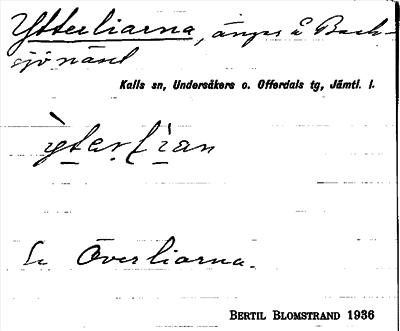 Ytterliarna, ängs å Back-
sjönäset
Kalls sn, Undersåkers o. Offerdals tg, Jämtl. l.
Se Överliarna.
BERTIL BLOMSTRAND 1936